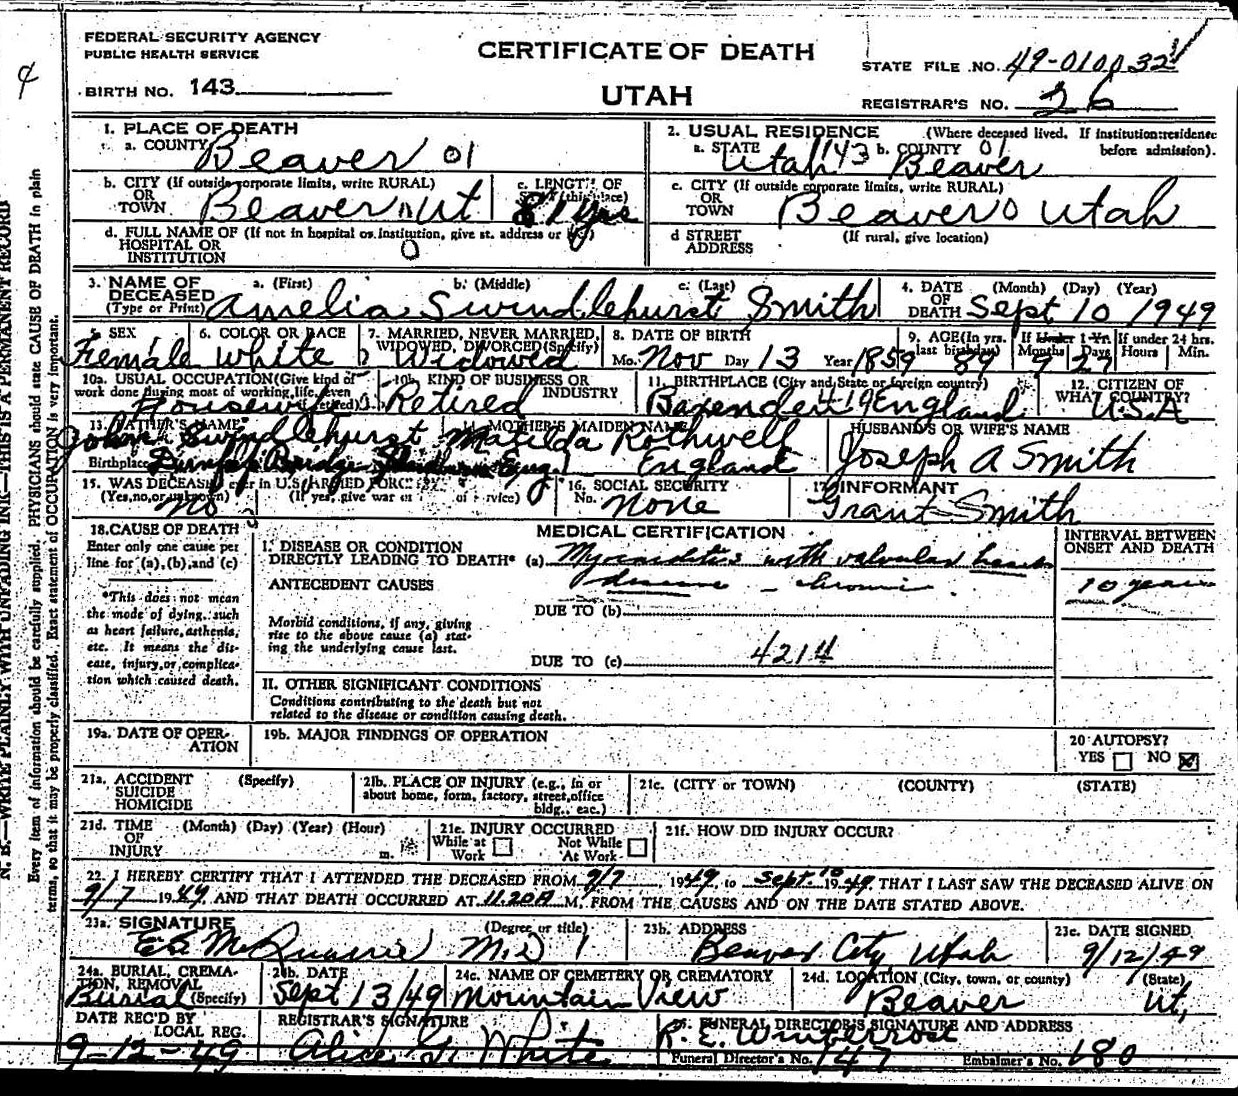 FEDERAL SECURITY AGENCY
PUBLIC HEALTH SERVICE
CERTIFICATE OF DEATH
STATE FILE NO. 49-010032
BIRTH NO. 143
UTAH
REGISTRAR'S NO. 26
1. PLACE OF DEATH
a. COUNTY Beaver 01
2. USUAL RESIDENCE (Where deceased lived. If institution: residence before admission).
a. STATE Utah 143 b. COUNTY 01 Beaver
b. CITY (If outside corporate limits, write RURAL) OR TOWN Beaver Ut
c. LENGTH OF STAY (this place) 81 yrs
c. CITY (If outside corporate limits, write RURAL) OR TOWN Beaver 0 Utah
d. FULL NAME OF (If not in hospital or institution, give st. address or HOSPITAL OR INSTITUTION 0
d STREET ADDRESS (If rural, give location)
3. NAME OF DECEASED (Type or Print) a. (First) b. (Middle) c. (Last)
Amelia Swindlehurst Smith
4. DATE OF DEATH (Month) (Day) (Year)
Sept 10 1949
5. SEX Female
6. COLOR OR RACE White
7. MARRIED, NEVER MARRIED, WIDOWED, DIVORCED (Specify) Widowed
8. DATE OF BIRTH Mo. Nov Day 13 Year 1859
9. AGE (In yrs. last birthday) 89 If Under 1 Yr. Months 9 Days 27 If under 24 hrs. Hours Min.
10a. USUAL OCCUPATION (Give kind of work done during most of working life, even retired) Housewife
10b. KIND OF BUSINESS OR INDUSTRY Retired
11. BIRTHPLACE (City and State or foreign country) 419 England
12. CITIZEN OF WHAT COUNTRY? U.S.A
13. FATHER'S NAME John Swindlehurst
14. MOTHER'S MAIDEN NAME Matilda Rothwell
HUSBAND'S OR WIFE'S NAME
Joseph A Smith
Birthplace Bridge Eng.
England
15. WAS DECEASED ever in U.S. ARMED FORCES? (Yes, no, or unknown) (If yes, give war or of service) No
16. SOCIAL SECURITY No. None
17. INFORMANT Grant Smith
18. CAUSE OF DEATH
Enter only one cause per line for (a), (b), and (c)
*This does not mean the mode of dying, such as heart failure, asthenia, etc. It means the disease, injury, or complication which caused death.
MEDICAL CERTIFICATION
INTERVAL BETWEEN ONSET AND DEATH
I. DISEASE OR CONDITION DIRECTLY LEADING TO DEATH* (a) Myocarditis with valvular heart
disease - chronic.
10 years
ANTECEDENT CAUSES
DUE TO (b)
Morbid conditions, if any, giving rise to the above cause (a) stating the underlying cause last.
DUE TO (c) 4214
II. OTHER SIGNIFICANT CONDITIONS
Conditions contributing to the death but not related to the disease or condition causing death.
19a. DATE OF OPERATION
19b. MAJOR FINDINGS OF OPERATION
20 AUTOPSY?
YES NO
21a. ACCIDENT SUICIDE HOMICIDE (Specify)
21b. PLACE OF INJURY (e.g., in or about home, form, factory, street, office bldg., eac.)
21c. (CITY or TOWN) (COUNTY) (STATE)
21d. TIME OF INJURY (Month) (Day) (Year) (Hour) m.
21e. INJURY OCCURRED While at Work Not While At Work
21f. HOW DID INJURY OCCUR?
22. I HEREBY CERTIFY THAT I ATTENDED THE DECEASED FROM 9/7, 1949, to Sept. 10 1949, THAT I LAST SAW THE DECEASED ALIVE ON
9/7 1949, AND THAT DEATH OCCURRED AT 11.20A M. FROM THE CAUSES AND ON THE DATE STATED ABOVE.
23a. SIGNATURE (Degree or title)
M.D
23b. ADDRESS
Beaver City Utah
23c. DATE SIGNED
9/12/49
24a. BURIAL, CREMATION, REMOVAL (Specify) Burial
24b. DATE Sept 13/49
24c. NAME OF CEMETERY OR CREMATORY Mountain View
24d. LOCATION (City, town, or county) (State)
Beaver Ut,
DATE REC'D BY LOCAL REG. 9-12-49
REGISTRAR'S SIGNATURE
Alice G. White
25. FUNERAL DIRECTOR'S SIGNATURE AND ADDRESS
R. E. Winterrose
Funeral Director's No. 147 Embalmer's No. 180
N. B.—WRITE PLAINLY WITH UNFADING INK—THIS IS A PERMANENT RECORD
Every item of information should be carefully supplied. PHYSICIANS should state CAUSE OF DEATH in plain
terms, so that it may be properly classified. Exact statement of OCCUPATION is very important.